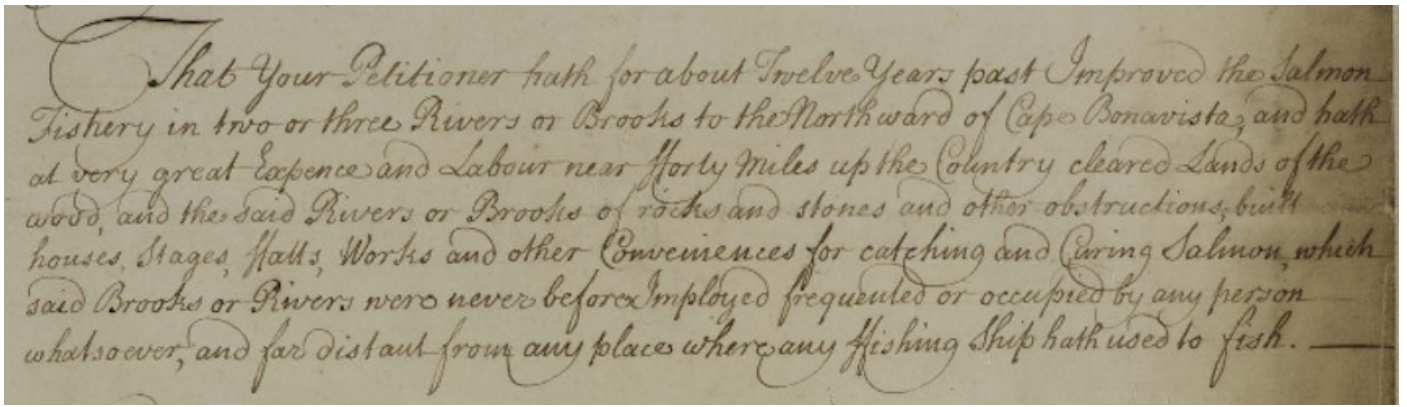 That Your Petitioner hath for about Twelve Years past Improved the Salmon
Fishery in two or three Rivers or Brooks to the Northward of Cape Bonavista, and hath
at very great Expence and Labour near fforty Miles up the Country cleared Lands of the
wood, and the said Rivers or Brooks of rocks and stones and other obstructions, built
houses, Stages, fflatts, Works and other Conveniences for catching and Curing Salmon, which
said Brooks or Rivers were never before Imployed frequented or occupied by any person
whatsoever, and far distant from any place where any ffishing Ship hath used to fish.